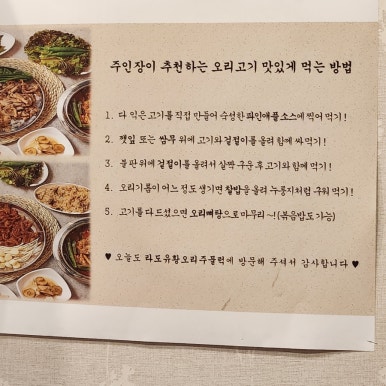 주인장이 추천하는 오리고기 맛있게 먹는 방법
1. 다 익은 고기를 직접 만들어 숙성한 파인애플 소스에 찍어 먹기!
2. 깻잎 또는 쌈무 위에 고기와 겉절이를 올려 함께 싸 먹기!
3. 불판 위에 겉절이를 올려서 살짝 구운 후 고기와 함께 먹기!
4. 오리기름이 어느 정도 생기면 찰밥을 올려 누룽지처럼 구워 먹기!
5. 고기를 다 드셨으면 오리뼈탕으로 마무리~!(볶음밥도 가능)
♥ 오늘도 라도유황오리주물럭에 방문해 주셔서 감사합니다 ♥